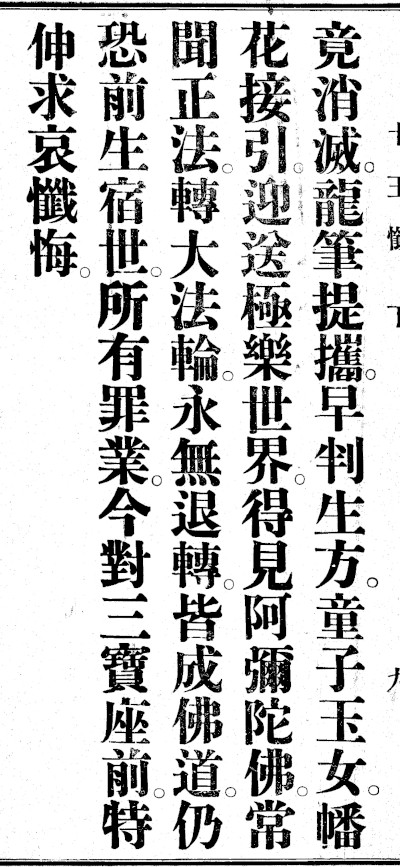 竟消滅。龍筆提攜。早判生方。童子玉女。幡
花接引。迎送極樂世界。得見阿彌陀佛。常
聞正法。轉大法輪。永無退轉。皆成佛道。仍
恐前生宿世。所有罪業。今對三寶座前。特
伸求哀懺悔。